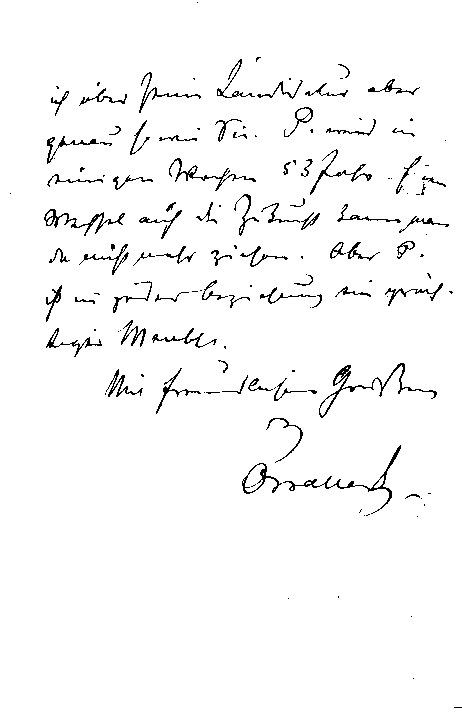 ich über seine Kandidatur aber
genau so wie Sie. P. wird in
einigen Wochen 53 Jahr. Einen
Wechsel auf die Zukunft kann man
da nicht mehr ziehen. Aber P.
ist in jeder Beziehung ein präch-
tiger Mensch.
Mit freundlichen Grüßen